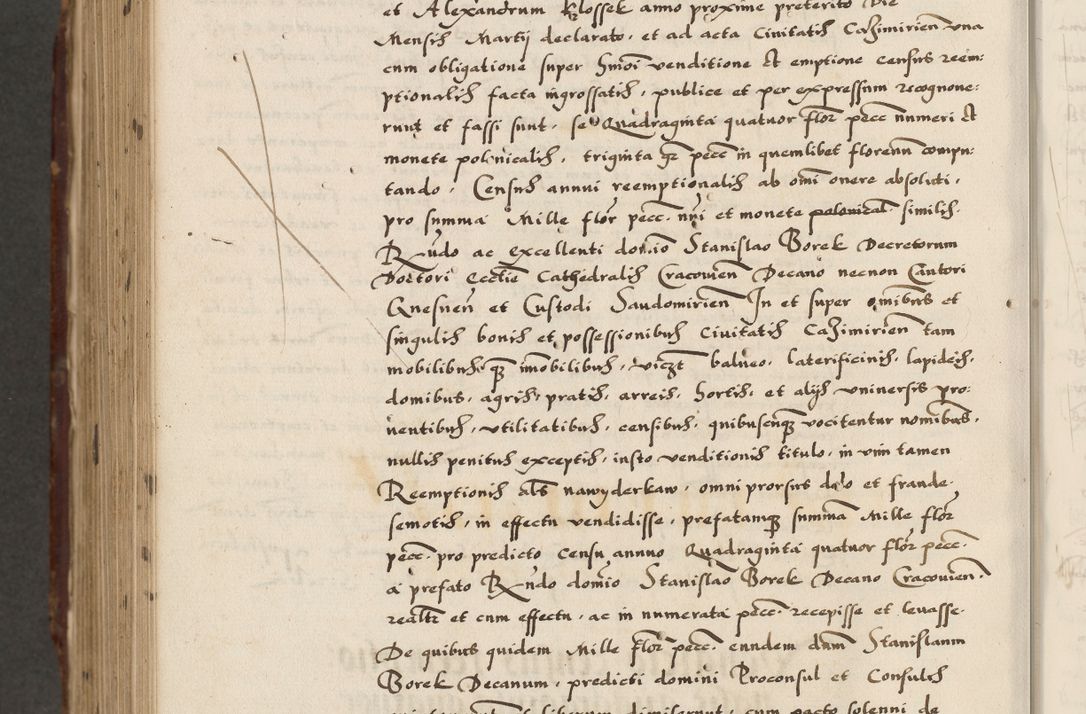 et Alexandrum Klossek anno proxime preterito Die
Mensis Martij declarato, et ad acta Civitatis Casimirien una
cum obligatione super hmoi venditione et emptione census reem:
ptionalis facta ingrossatis, publice et per expressum recognove:
runt et fassi sunt, se Quadraginta quatuor flor pecc numeri et
monete polinicalis, triginta gr pecc in quemlibet florenu compu:
tando, Census annui reemptionalis ab omi onere absoluti,
pro summa Mille flor pecc. nri et monete polonical. similis.
Rndo ac excellenti domio Stanislao Borek Decretorum
Doctori Ecctie Cathedralis Cracovien Decano necnon Cantori
Gnesnen et Custodi Sandomirien In et super omibus et
singulis bonis et possessionibus Civitatis Casimirien tam
mobilibus qz imobilibus, viczt balneo, laterificinis, lapideis,
domibus, agris, pratis, arreis, hortis, et alijs universis pro:
ventibus, utilitatibus, censibus, quibuscunqz vocitentur nomibus,
nullis penitus exceptis, iusto venditionis titulo, in vim tamen
Reemptionis als nawyderkaw, omni prorsus dolo et fraude
semotis, in effectu vendidisse, prefatamqz summa Mille flor
pecc. pro predicto Censu annuo Quadraginta quatuor flor pecc.
a prefato Rndo domio Stanislao Borek Decano Cracovien.
realtr et cum effectu, ac in numerata pecc. recepisse et levasse.
De quibus quidem Mille flor pecc. eundem dnm Stanislaum
Borek Decanum, predicti domini Proconsul et Consules
liberum dimiserunt, cum pacto solenni de